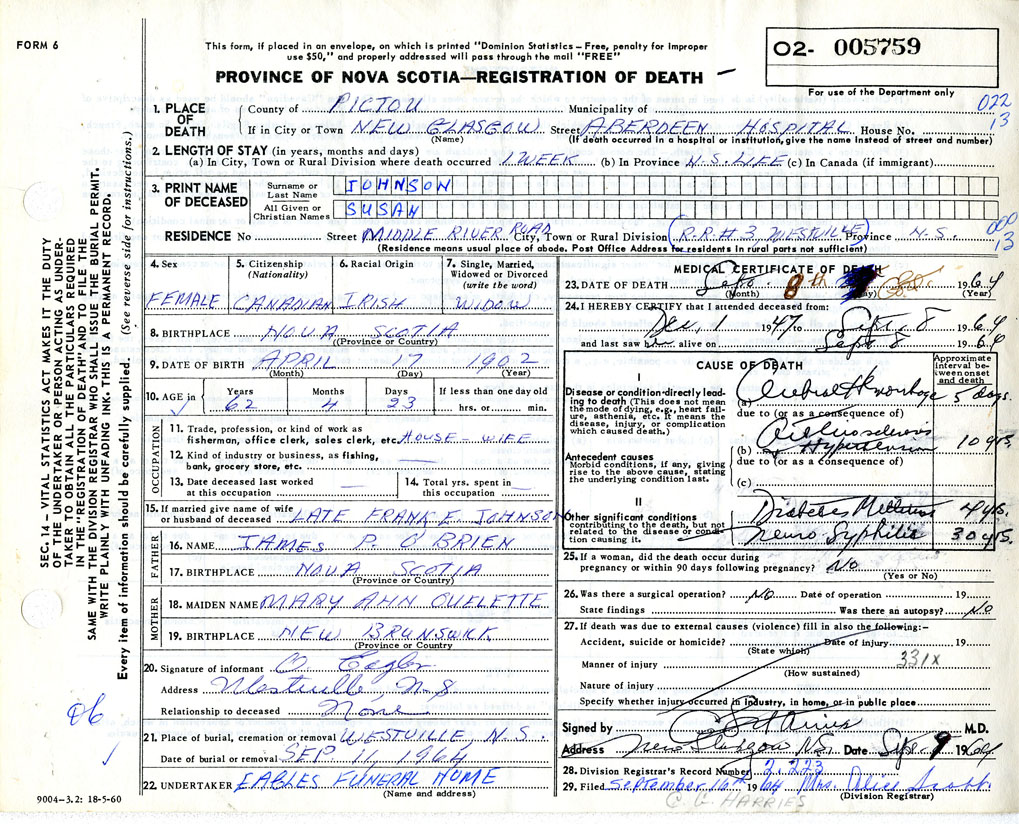 FORM 6
This form, if placed in an envelope, on which is printed "Dominion Statistics – Free, penalty for improper
use $50," and properly addressed will pass through the mail "FREE"
PROVINCE OF NOVA SCOTIA—REGISTRATION OF DEATH
O2- 005759
For use of the Department only
022
13
1. PLACE OF DEATH
County of PICTOU Municipality of
If in City or Town NEW GLASGOW Street ABERDEEN HOSPITAL House No.
(Name) (If death occurred in a hospital or institution, give the name instead of street and number)
2. LENGTH OF STAY (in years, months and days)
(a) In City, Town or Rural Division where death occurred 1 WEEK (b) In Province N.S. LIFE (c) In Canada (if immigrant)
3. PRINT NAME OF DECEASED
Surname or Last Name JOHNSON
All Given or Christian Names SUSAN
000
13
RESIDENCE No Street MIDDLE RIVER ROAD City, Town or Rural Division (R.R#3, WESTVILLE) Province N.S.
(Residence means usual place of abode. Post Office Address for residents in rural parts not sufficient)
4. Sex
FEMALE
5. Citizenship (Nationality)
CANADIAN
6. Racial Origin
IRISH
7. Single, Married, Widowed or Divorced (write the word)
WIDOW
8. BIRTHPLACE NOVA SCOTIA
(Province or Country)
9. DATE OF BIRTH APRIL 17 1902
(Month) (Day) (Year)
10. AGE in
Years Months Days If less than one day old
62 4 23 hrs. or min.
OCCUPATION
11. Trade, profession, or kind of work as
fisherman, office clerk, sales clerk, etc. HOUSE-WIFE
12. Kind of industry or business, as fishing,
bank, grocery store, etc.
13. Date deceased last worked
at this occupation
14. Total yrs. spent in
this occupation
15. If married give name of wife
or husband of deceased LATE FRANK E. JOHNSON
FATHER
16. NAME JAMES P. O'BRIEN
17. BIRTHPLACE NOVA SCOTIA
(Province or Country)
MOTHER
18. MAIDEN NAME MARY ANN OUELETTE
19. BIRTHPLACE NEW BRUNSWICK
(Province or Country)
20. Signature of informant
Address Westville, N-S
Relationship to deceased None
21. Place of burial, cremation or removal WESTVILLE N.S.
Date of burial or removal SEP. 11, 1964
22. UNDERTAKER EAGLES FUNERAL HOME
(Name and address)
9004-3.2: 18-5-60
MEDICAL CERTIFICATE OF DEATH
23. DATE OF DEATH Sept. 8th 1964
(Month) (Day) (Year)
24. I HEREBY CERTIFY that I attended deceased from:
Dec. 1 1947 to Sept. 8 1964
and last saw her alive on Sept 8 1964
CAUSE OF DEATH
Approximate interval between onset and death
I
Disease or condition directly leading to death (This does not mean
the mode of dying, e.g., heart failure, asthenia, etc. It means the
disease, injury, or complication
which caused death.)
(a) Cerebral Hemorrhage 5 days.
due to (or as a consequence of)
Antecedent causes
Morbid conditions, if any, giving
rise to the above cause, stating
the underlying condition last.
(b) Arteriosclerosis Hypertension 10 yrs.
due to (or as a consequence of)
(c)
II
Other significant conditions
contributing to the death, but not
related to the disease or condition causing it.
Diabetes Mellitus 4 yrs.
neuro-Syphilis 30 yrs.
25. If a woman, did the death occur during
pregnancy or within 90 days following pregnancy? No
(Yes or No)
26. Was there a surgical operation? No Date of operation 19
State findings Was there an autopsy? No
27. If death was due to external causes (violence) fill in also the following:–
Accident, suicide or homicide? Date of injury 19
(State which)
Manner of injury 331X
(How sustained)
Nature of injury
Specify whether injury occurred in industry, in home, or in public place
Signed by M.D.
Address New Glasgow N.S. Date Sept. 9 1964
28. Division Registrar's Record Number 2,223
29. Filed September 16th 1964 Mrs. Alice Scott.
(Division Registrar)
C. G. HARRIES
SEC. 14 – VITAL STATISTICS ACT MAKES IT THE DUTY
OF THE UNDERTAKER OR PERSON ACTING AS UNDERTAKER TO OBTAIN ALL THE PARTICULARS REQUIRED
IN THE "REGISTRATION OF DEATH" AND TO FILE THE
SAME WITH THE DIVISION REGISTRAR WHO SHALL ISSUE THE BURIAL PERMIT.
WRITE PLAINLY WITH UNFADING INK. THIS IS A PERMANENT RECORD.
Every item of information should be carefully supplied. (See reverse side for instructions.)